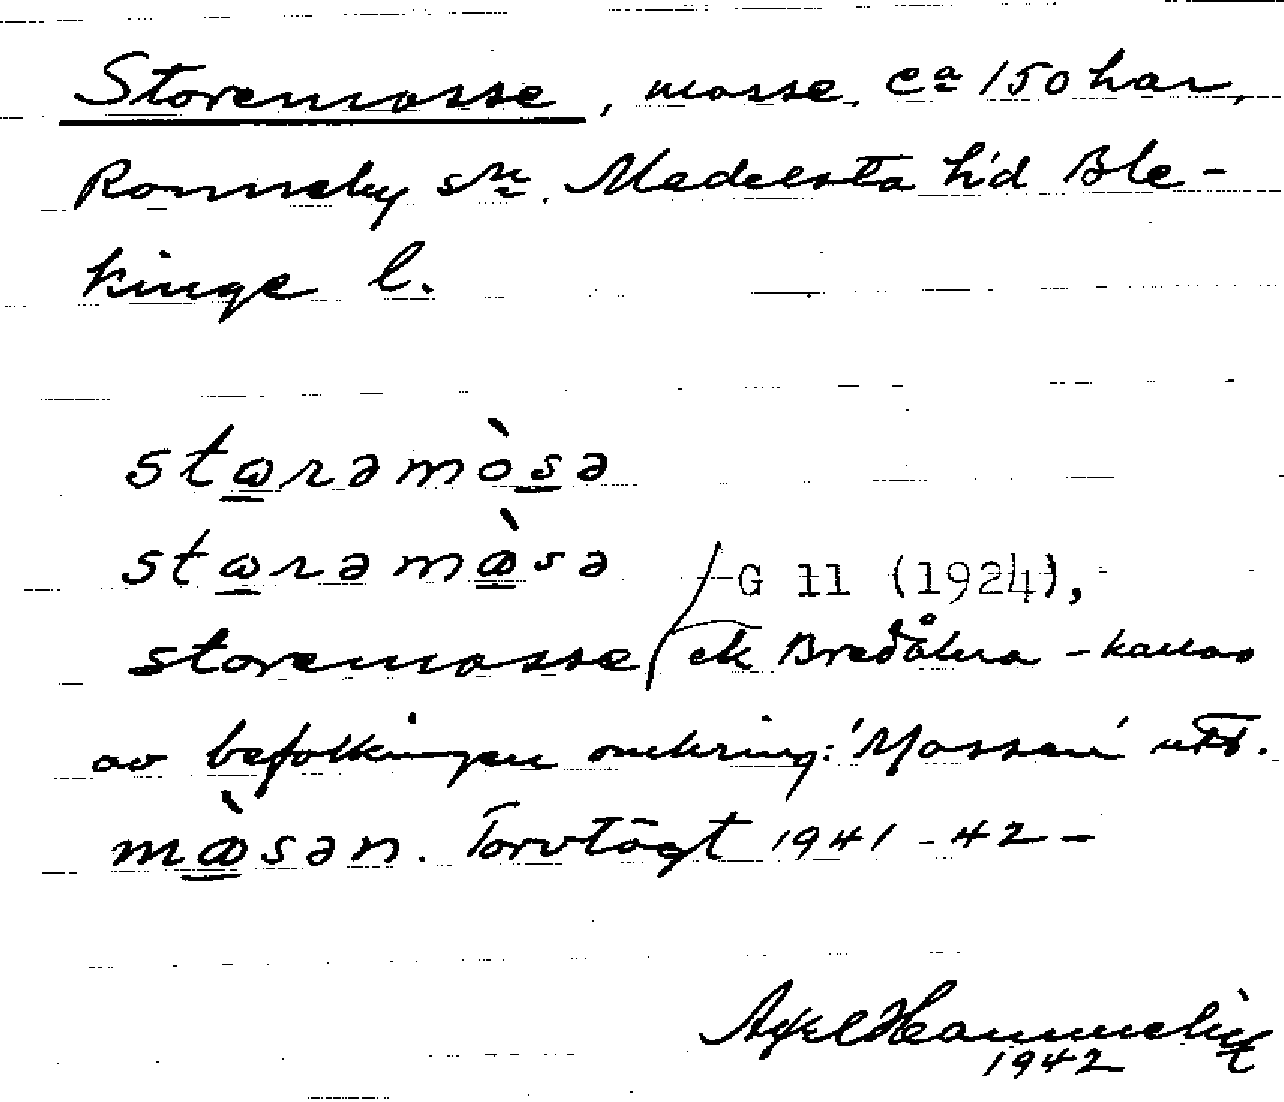 Storemosse, mosse, ca 150 har,
Ronneby sn. Medelsta h'd Ble-
kinge l.
stɷrəmòsə
stɷrəmɷ̀sə G 11 (1924),
storemosse ek Bredåkra - kallas
av befolkningen omkring: 'Mossen' utt.
mɷ̀sən. Torvtägt 1941-42-
Axel
1942